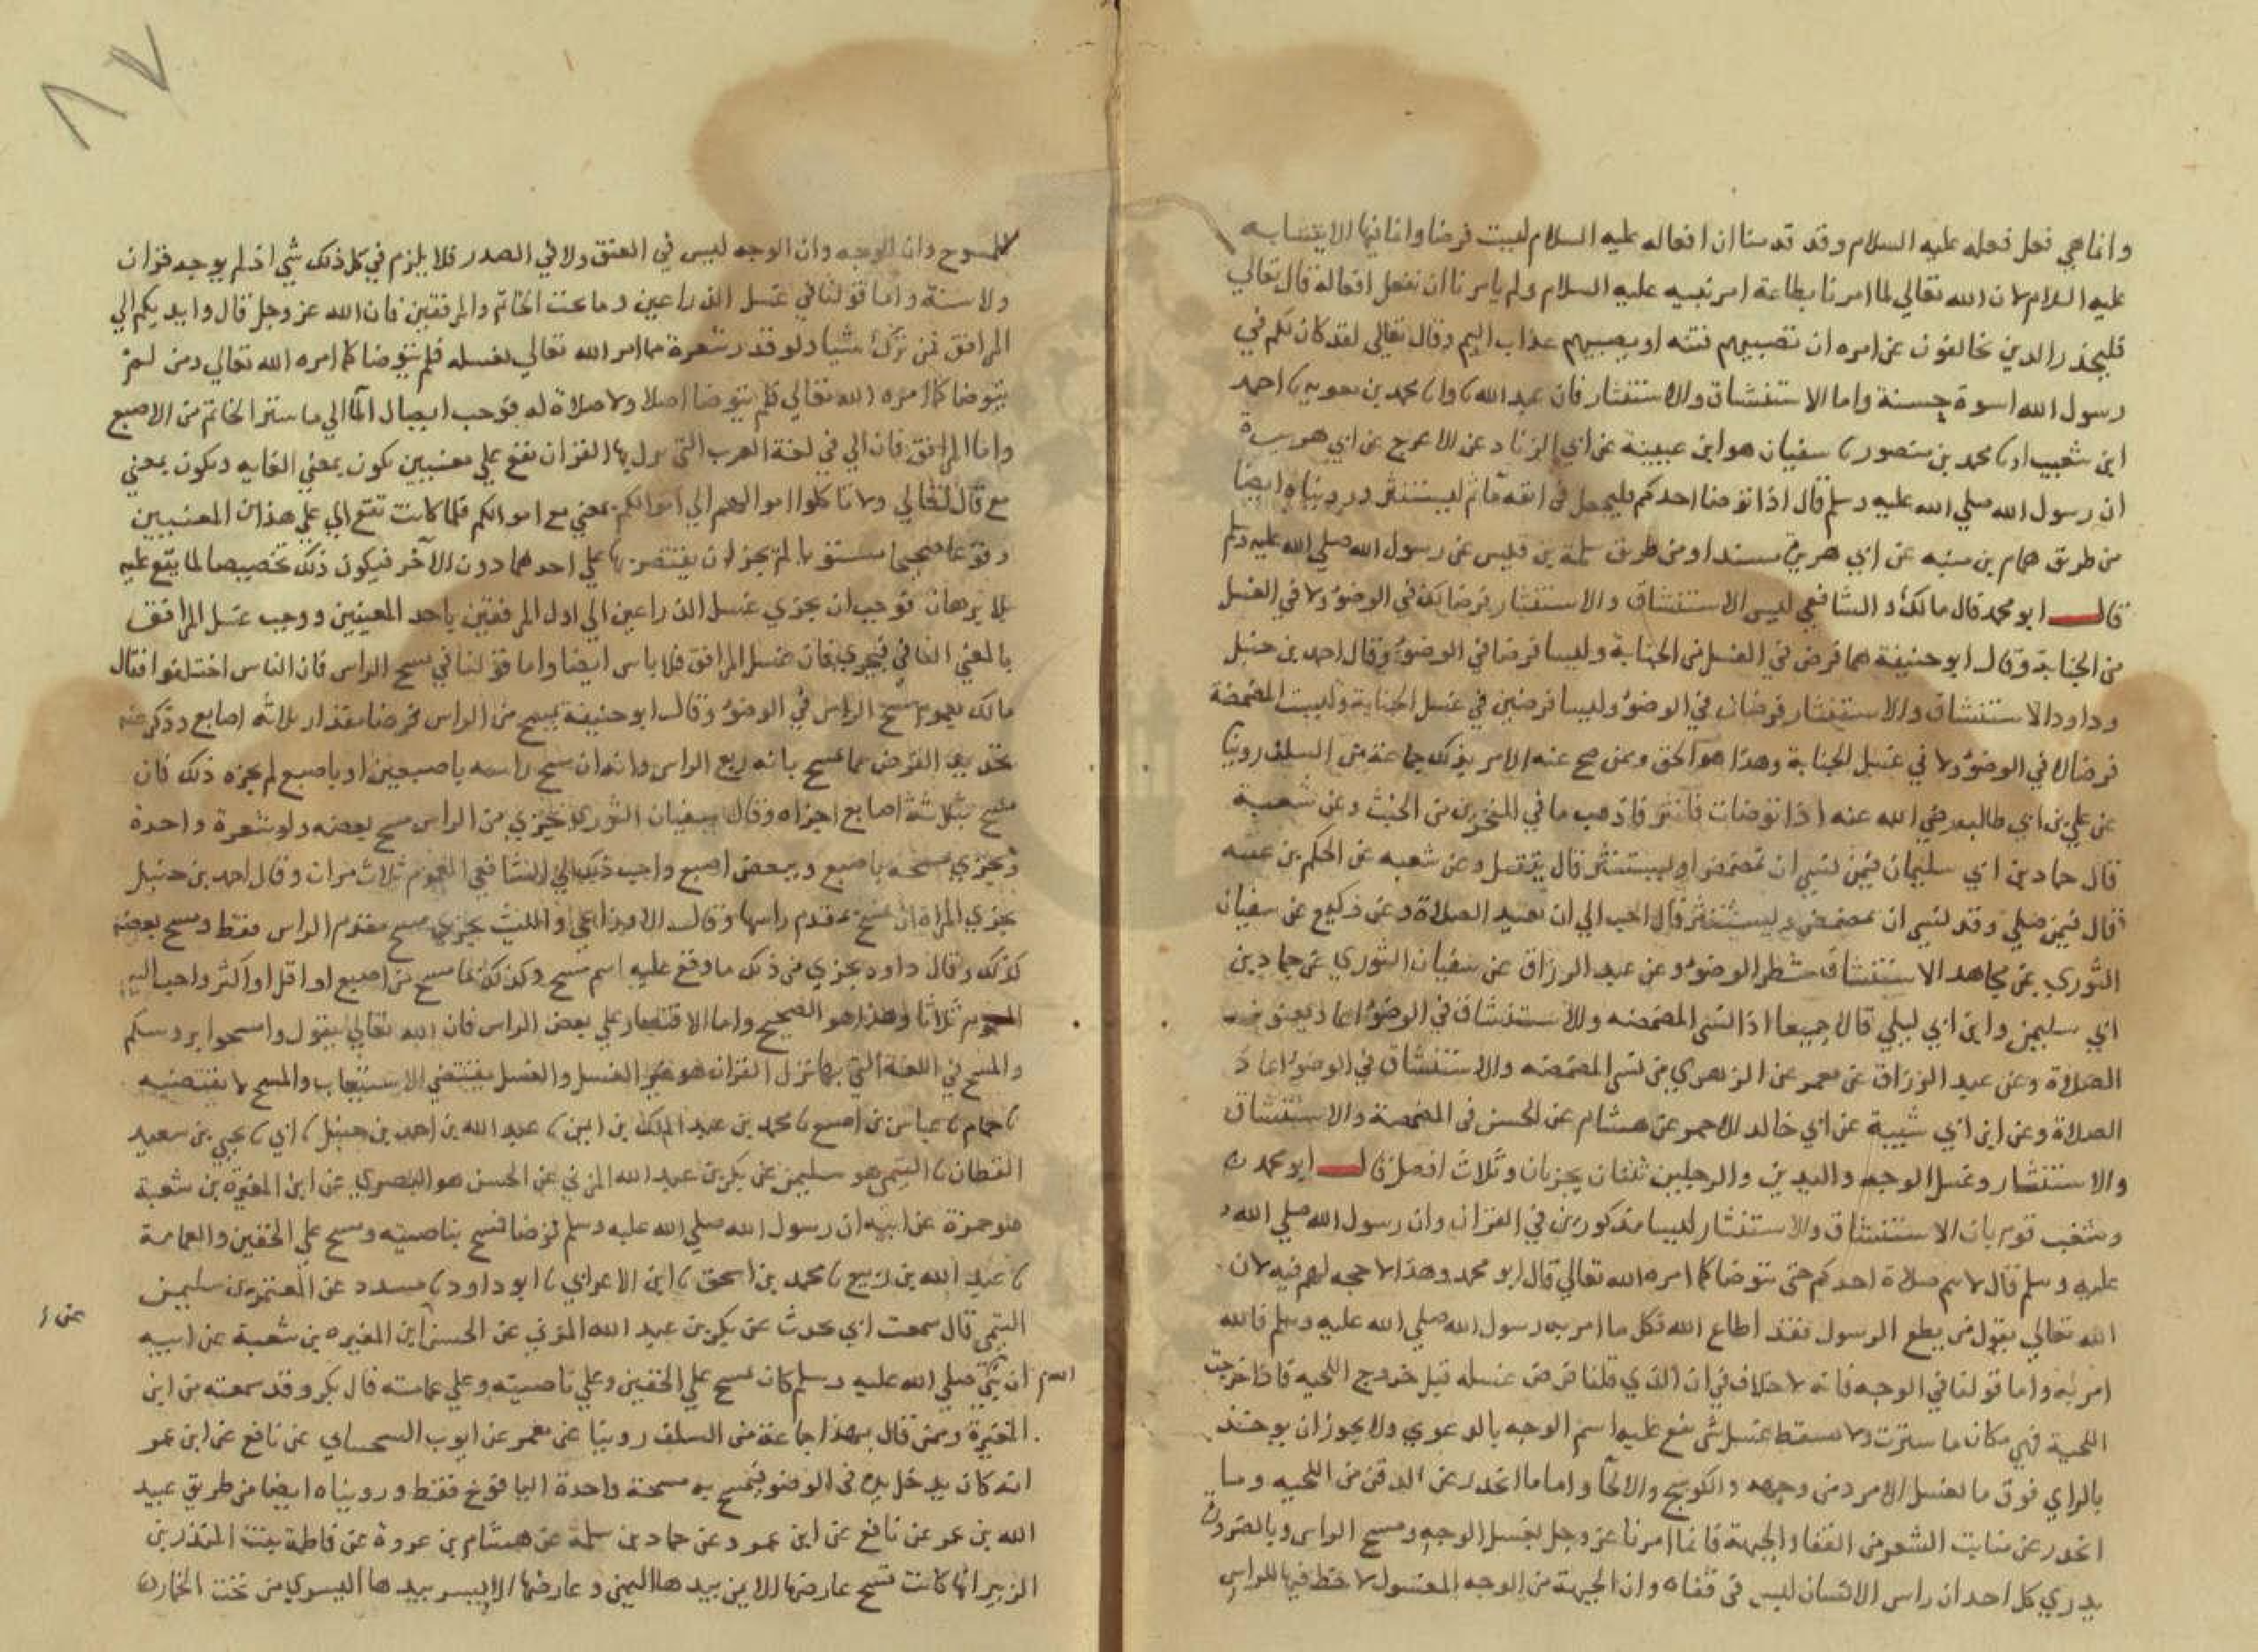 وانما هي فعل فعله عليه السلام وقد قدمنا ان افعاله عليه السلام ليست فرضا وانما فيها الايتسا به
عليه السلام لان الله تعالي لما امرنا بطاعة امر نبيه عليه السلام ولم يامرنا ان نفعل افعاله قال تعالي
فليحذر الذين يخالفون عن امره ان تصيبهم فتنه او يصيبهم عذاب اليم وقال تعالي لقد كان لكم في
رسول الله اسوة حسنة واما الاستنشاق والاستنثار فان عبد الله نا قال نا محمد بن معويه نا احمد
ابن شعيب انا محمد بن منصور نا سفيان هو ابن عيينة عن ابي الزناد عن الاعرج عن ابي هريرة
ان رسول الله صلي الله عليه وسلم قال اذا توضا احدكم فليجعل في انفه ماثم ليستنثر ورويناه ايضا
من طريق همام بن منبه عن ابي هريرة مسندا ومن طريق سلمة بن قيس عن رسول الله صلي الله عليه وسلم
قال ابو محمد قال مالك والشافعي ليس الاستنشاق والاستنثار فرضا لا في الوضوء ولا في الغسل
من الجنابة وقال ابو حنيفة هما فرض في الغسل من الجنابة وليسا فرضا في الوضوء وقال احمد بن حنبل
وداود الاستنشاق والاستنثار فرضان في الوضوء وليسا فرضين في غسل الجنابة وليست المضمضة
فرضا لا في الوضوء ولا في غسل الجنابة وهذا هو الحق وممن صح عنه الامر بذلك جماعة من السلف روينا
عن علي بن ابي طالب رضي الله عنه اذا توضات فانثر فاذهب ما في المنخرين من الخبث وعن شعبة
قال حماد بن ابي سليمان فيمن نسي ان يمضمض او يستنثر قال يستقبل وعن شعبه عن الحكم بن عتيبه
قال فيمن صلي وقد نسي ان يمضمض ويستنثر قال احب الي ان يعيد الصلاة وعن وكيع عن سفيان
الثوري عن مجاهد الاستنشاق شطر الوضوء وعن عبد الرزاق عن سفيان الثوري عن حماد بن
ابي سليمن وابن ابي ليلي قالا جميعا اذا نسي المضمضه والاستنشاق في الوضوء اعاد
الصلاة وعن عبد الرزاق عن معمر عن الزهري من نسي المضمضه والاستنشاق في الوضوء اعاد
الصلاة وعن ابن ابي شيبة عن ابي خالد الاحمر عن هشام عن الحسن في المضمضة والاستنشاق
والاستنثار وغسل الوجه واليدين والرجلين ثنتان يجزيان وثلاث افضل قال ابو محمد
وشغب قوم بان الاستنشاق والاستنثار ليسا مذكورين في القران وان رسول الله صلي الله
عليه وسلم قال لا تتم صلاة احدكم حتي يتوضا كما امره الله تعالي قال ابو محمد وهذا لا حجه لهم فيه لان
الله تعالي يقول من يطع الرسول فقد اطاع الله فكل ما امر به رسول الله صلي الله عليه وسلم فالله
امر به واما قولنا في الوجه فانه لا خلاف في ان الذي قلنا فرض غسله قبل خروج اللحيه فاذا خرجت
اللحية فهي مكان ما سترت ولا يسقط غسل شي يقع عليه اسم الوجه بالدعوي ولا يجوز ان يوخذ
بالراي فرق ما يغسل الامرد من وجهه والكوسج والالحا واما ما انحدر عن الذقن من اللحيه وما
انحدر عن منابت الشعر من القفا والجبهة فانما امرنا عز وجل بغسل الوجه ومسح الراس وبالضرورة
يدري كل احد ان راس الانسان ليس في قفاه وان الجبهة من الوجه المغسول لا حظ فيها للراس
الممسوح وان الوجه وان الوجه ليس في العنق ولا في الصدر فلا يلزم في كل ذلك شي اذ لم يوجبه قران
ولا سنة واما قولنا في غسل الذراعين وما تحت الخاتم والمرفقين فان الله عز وجل قال وايديكم الي
المرافق فمن ترك شيا ولو قدر شعرة مما امر الله تعالي بغسله فلم يتوضا كما امره الله تعالي ومن لم
يتوضا كما امره الله تعالي فلم يتوضا اصلا ولا صلاة له فوجب ايصال الما الي ما ستر الخاتم من الاصبع
واما المرافق فان الي في لغة العرب التي نزل بها القران تقع علي معنيين تكون بمعني الغايه وتكون بمعني
مع قال تعالي ولا تاكلوا اموالهم الي اموالكم بمعني مع اموالكم فلما كانت تقع الي علي هذين المعنيين
وقوعا صحيحا مستويا لم يجز ان يقتصر بها علي احدهما دون الآخر فيكون ذلك تخصيصا لما يقع عليه
بلا برهان فوجب ان يجزي غسل الذراعين الي اول المرفقين باحد المعنيين ووجب غسل المرافق
بالمعني الثاني فيجزي فان غسل المرافق فلا باس ايضا واما قولنا في مسح الراس فان الناس اختلفوا فقال
مالك بعموم مسح الراس في الوضوء وقال ابو حنيفة يمسح من الراس فرضا مقدار ثلاثه اصابع وذكر عنه
تحديد الفرض مما يمسح بانه ربع الراس وانه ان مسح راسه باصبعين او باصبع لم يجزه ذلك فان
مسح بثلاثة اصابع اجزاه وقال سفيان الثوري يجزي من الراس مسح بعضه ولو شعرة واحدة
ويجزي مسحه باصبع وببعض اصبع واحب ذلك الي الشافعي العموم ثلاث مرات وقال احمد بن حنبل
يجزي المراة ان تمسح مقدم راسها وقال الاوزاعي والليث يجزي مسح مقدم الراس فقط ومسح بعضه
كذلك وقال داود يجزي من ذلك ما وقع عليه اسم مسح وكذلك بما مسح من اصبع او اقل او اكثر واحب اليه
العموم ثلاثا وهذا هو الصحيح واما الاقتصار علي بعض الراس فان الله تعالي يقول وامسحوا بروسكم
والمسح في اللغة التي بها نزل القران هو غير الغسل والغسل يقتضي الاستيعاب والمسح لا يقتضيه
نا حمام نا عباس بن اصبغ نا محمد بن عبد الملك بن ايمن نا عبد الله بن احمد بن حنبل نا ابي نا يحيي بن سعيد
القطان نا التيمي هو سليمن عن بكر بن عبد الله المزني عن الحسن هو البصري عن ابن المغيرة بن شعبة
هو حمزة عن ابيه ان رسول الله صلي الله عليه وسلم توضا فمسح بناصيته ومسح علي الخفين والعمامة
نا عبد الله بن ربيع نا محمد بن اسحق نا ابن الاعرابي نا ابو داود نا مسدد عن المعتمر بن سليمن
التيمي قال سمعت ابي يحدث عن بكر بن عبد الله المزني عن الحسن ابن المغيره بن شعبة عن ابيه
عن ا
ان نبي صلي الله عليه وسلم كان يمسح علي الخفين وعلي ناصيته وعلي عمامته قال بكر وقد سمعته من ابن
المغيرة وممن قال بهذا جماعة من السلف روينا عن معمر عن ايوب السختياني عن نافع عن ابن عمر
انه كان يدخل يده في الوضو فيمسح به مسحة واحدة اليافوخ فقط ورويناه ايضا من طريق عبيد
الله بن عمر عن نافع عن ابن عمر وعن حماد بن سلمة عن هشام بن عروة عن فاطمة بنت المنذر بن
الزبير انها كانت تمسح عارضها الايمن بيدها اليمني وعارضها الايسر بيدها اليسري من تحت الخمار
٨٧